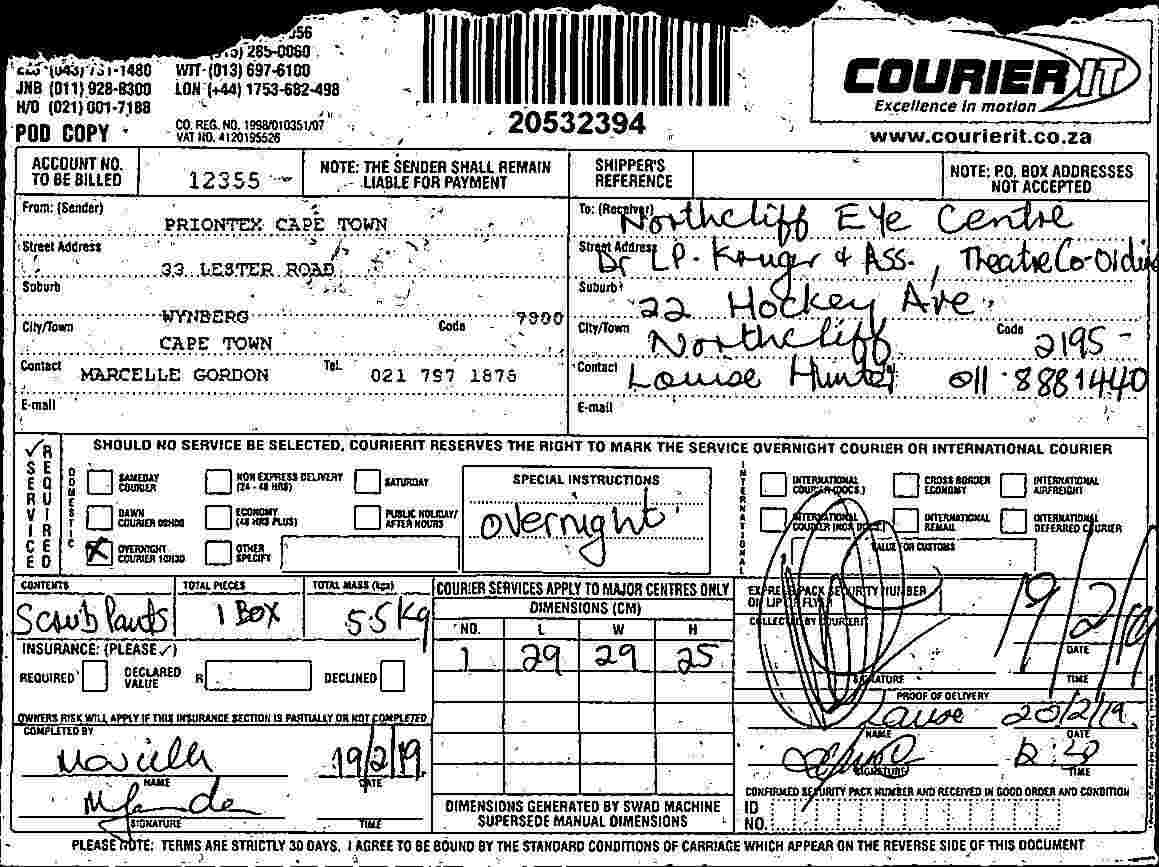 285-0060
WIT (013) 697-6100
JNB (011) 928-8300 LON (+44) 1753-682-498
H/O (021) 001-7188
POD COPY
CO. REG. NO. 1998/010351/07
VAT NO. 4120195526
20532394
COURIER IT
Excellence in motion
www.courierit.co.za
ACCOUNT NO. TO BE BILLED
12355
NOTE: THE SENDER SHALL REMAIN LIABLE FOR PAYMENT
SHIPPER'S REFERENCE
NOTE: P.O. BOX ADDRESSES NOT ACCEPTED
From: (Sender)
PRIONTEX CAPE TOWN
Street Address
33 LESTER ROAD
Suburb
WYNBERG
City/Town
Code
CAPE TOWN
Contact MARCELLE GORDON Tel. 021 797 1876
E-mail
To: (Receiver) Northcliff Eye Centre
Street Address Dr LP. Kruger & Ass., Theatre Co-Oldin
Suburb 22 Hockey Ave.
City/Town Northcliff Code 2195-
Contact Louise Hunter 011 8881440
E-mail
SERVICE REQUIRED
SHOULD NO SERVICE BE SELECTED, COURIERIT RESERVES THE RIGHT TO MARK THE SERVICE OVERNIGHT COURIER OR INTERNATIONAL COURIER
DOMESTIC
SAMEDAY COURIER
NON EXPRESS DELIVERY (24 - 48 HRS)
SATURDAY
DAWN COURIER 09H00
ECONOMY (48 HRS PLUS)
PUBLIC HOLIDAY/ AFTER HOURS
OVERNIGHT COURIER 10H30
OTHER SPECIFY
SPECIAL INSTRUCTIONS
overnight
INTERNATIONAL
INTERNATIONAL COURIER (DOCS.)
CROSS BORDER ECONOMY
INTERNATIONAL AIRFREIGHT
INTERNATIONAL COURIER (NON DOCS.)
INTERNATIONAL REMAIL
INTERNATIONAL DEFERRED COURIER
VALUE FOR CUSTOMS
CONTENTS
Scrub Pants
TOTAL PIECES
1 Box
TOTAL MASS (kgs)
5.5 kg
COURIER SERVICES APPLY TO MAJOR CENTRES ONLY
DIMENSIONS (CM)
NO. L W H
1 29 29 25
DIMENSIONS GENERATED BY SWAD MACHINE SUPERSEDE MANUAL DIMENSIONS
INSURANCE: (PLEASE ✓)
REQUIRED
DECLARED VALUE R
DECLINED
OWNERS RISK WILL APPLY IF THIS INSURANCE SECTION IS PARTIALLY OR NOT COMPLETED
COMPLETED BY
NAME
19/2/19
DATE
SIGNATURE
TIME
EXPRESS PACK SECURITY NUMBER
COLLECTED BY COURIERIT
19/2/19
DATE
SIGNATURE
TIME
PROOF OF DELIVERY
20/2/19
NAME
DATE
SIGNATURE
TIME
CONFIRMED SECURITY PACK NUMBER AND RECEIVED IN GOOD ORDER AND CONDITION
ID NO.
PLEASE NOTE: TERMS ARE STRICTLY 30 DAYS. I AGREE TO BE BOUND BY THE STANDARD CONDITIONS OF CARRIAGE WHICH APPEAR ON THE REVERSE SIDE OF THIS DOCUMENT